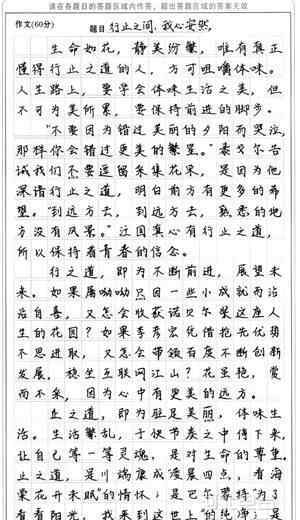 请在各题目的答题区域内作答，超出答题区域的答案无效
作文(60分)
题目 行止之间，我心安然
生命如花，静美纷繁，唯有真正
懂得行止之道的人，方可咀嚼体味。
人生路上，要学会体味生活之美，但
不可为美所累，要保持前进的脚步。
“不要因为错过美丽的夕阳而哭泣，
那样你会错过更美的繁星。”泰戈尔告
诫我们不要逗留采集花朵，是因为他
深谙行止之道，明白前方有更多的希
望。“到远方去，到远方去，熟悉的地
方没有风景。”汪国真心有行止之道，
所以保持着青春的信念。
行之道，即为不断前进，展望未
来。如果屠呦呦只因一些小成就而沾
沾自喜，又怎会收获诺贝尔奖这座人
生的花园？如果李彦宏凭借抢先优势
不思进取，又怎会带领百度不断创新
发展，稳坐互联网江山？花虽艳，赏
而不采，因为心中有更美的远方。
止之道，即为驻足美丽，体味生
活。生活繁乱，于快节奏之中停下来，
让自己等一等灵魂，是对生命的尊重。
止之道，是川端康成凌晨四点，看海
棠花开未眠的情怀；是巴尔蒙特“为了
看看阳光，我来到这世上”的纯净；是